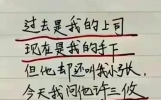 过去是我的上司
现在是我的手下
但他却还叫我小张,
今天我问他许三俊